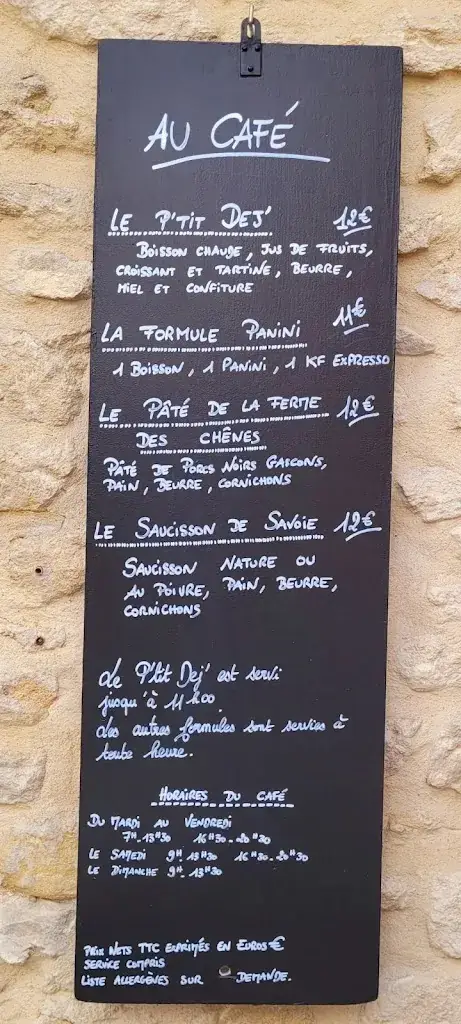 AU CAFÉ
LE P'TIT DEJ' 12€
BOISSON CHAUDE, JUS DE FRUITS,
CROISSANT ET TARTINE, BEURRE,
MIEL ET CONFITURE
LA FORMULE PANINI 11€
1 BOISSON, 1 PANINI, 1 KF EXPRESSO
LE PÂTÉ DE LA FERME 12€
DES CHÊNES
PÂTÉ DE PORCS NOIRS GASCONS,
PAIN, BEURRE, CORNICHONS
LE SAUCISSON DE SAVOIE 12€
SAUCISSON NATURE OU
AU POIVRE, PAIN, BEURRE,
CORNICHONS
Le P'tit Dej' est servi
jusqu'à 11H00.
Les autres formules sont servies à
toute heure.
HORAIRES DU CAFÉ
DU MARDI AU VENDREDI
7H-13H30 16H30-20H30
LE SAMEDI 9H-13H30 16H30-20H30
LE DIMANCHE 9H-13H30
PRIX NETS TTC EXPRIMÉS EN EUROS €
SERVICE COMPRIS
LISTE ALLERGÈNES SUR DEMANDE.